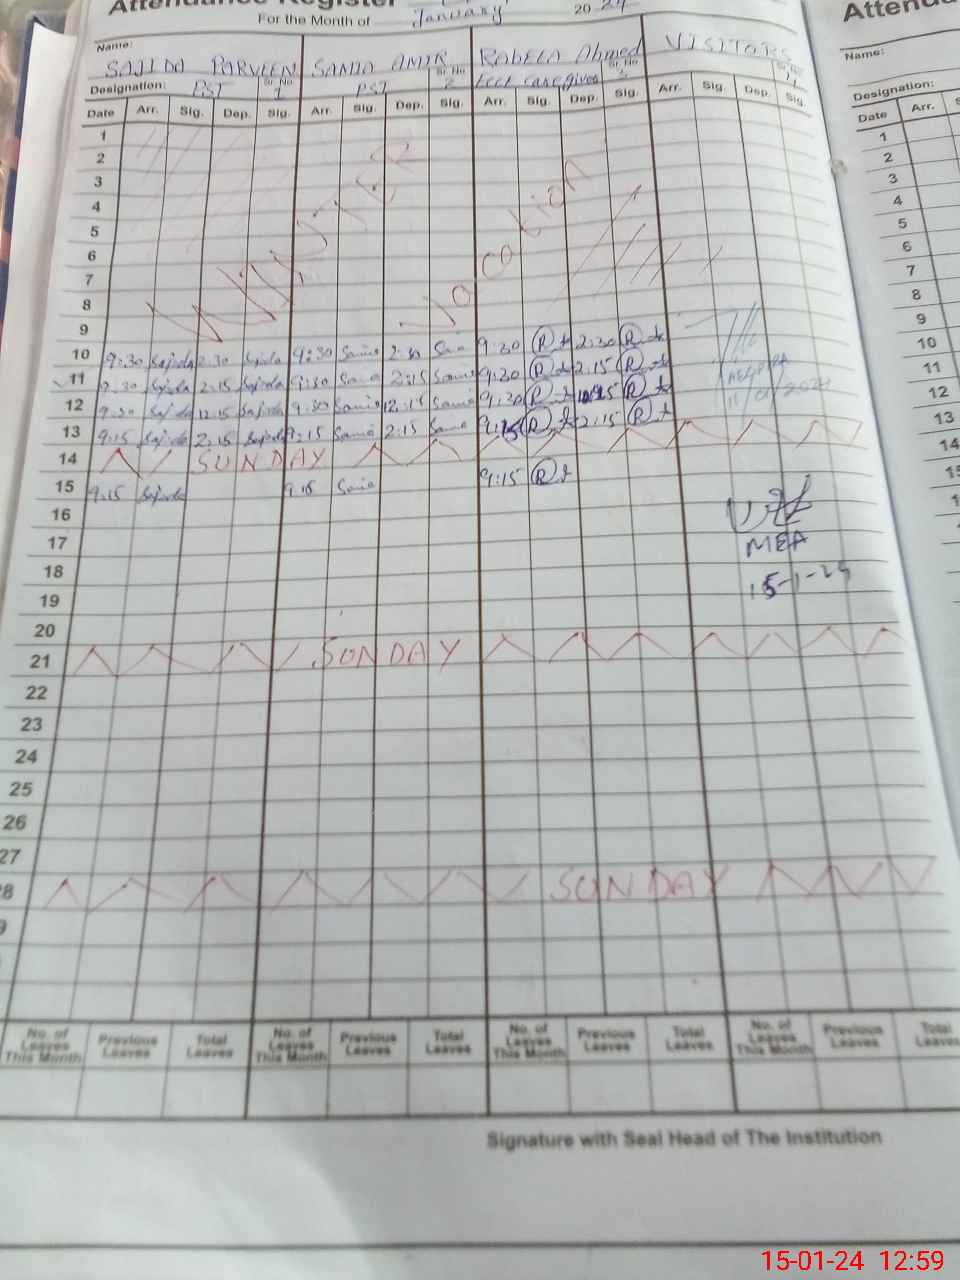 Attendance Register
For the Month of January 2024
Attenda
Name: SAJIDA PARVEEN SANIA AMIR RABELA Ahmed VISITORS
Name:
Designation: PST Sr. No 1 PST Sr. No 2 Sr. No 3 Sr. No
Designation:
Date Arr. Sig. Dep. Sig. Arr. Sig. Dep. Sig. Arr. Sig. Dep. Sig. Arr. Sig. Dep. Sig.
Date Arr. S
1
2
3
4
5
6
7
8
9
WINTER Vacation
10 9:30 Sajida 2:30 Sajida 9:30 Sania 2:30 Sania 9:30 R 2:30 R
11 9:30 Sajida 2:15 Sajida 9:30 Sania 2:15 Sania 9:30 R 2:15 R
12 9:30 Sajida 12:15 Sajida 9:30 Sania 12:15 Sania 9:30 R R
13 9:15 Sajida 2:15 Sajida 9:15 Sania 2:15 Sania 9:15 R 2:15 R
14 SUNDAY
15 9:15 Sajida 9:15 Sania 9:15 R
16
17 MEA
18 15-1-24
19
20
21 SUNDAY
22
23
24
25
26
27
28 SUNDAY
9
1
2
3
4
5
6
7
8
9
10
11
12
13
14
15
1
No. of Leaves This Month Previous Leaves Total Leaves No. of Leaves This Month Previous Leaves Total Leaves No. of Leaves This Month Previous Leaves Total Leaves No. of Leaves This Month Previous Leaves Total Leaves
Signature with Seal Head of The Institution
15-01-24 12:59